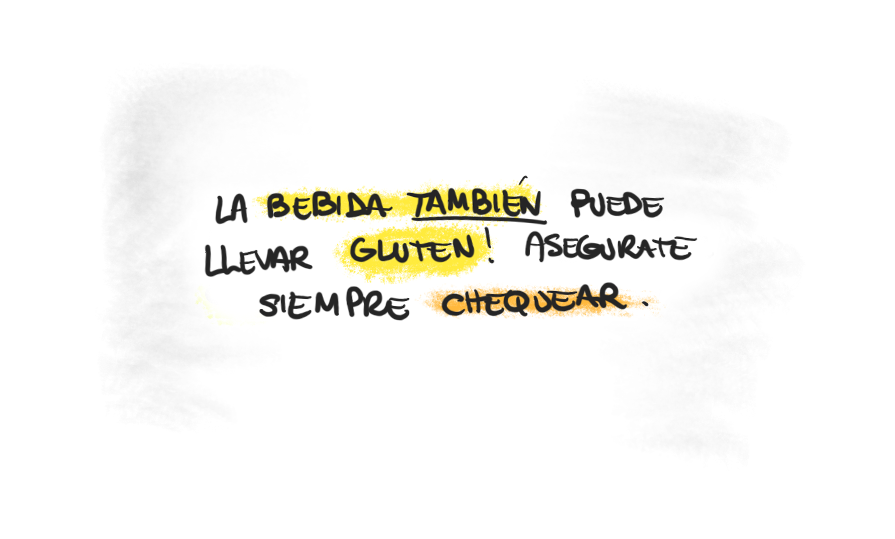 LA BEBIDA TAMBIÉN PUEDE
LLEVAR GLUTEN! ASEGURATE
SIEMPRE CHEQUEAR.